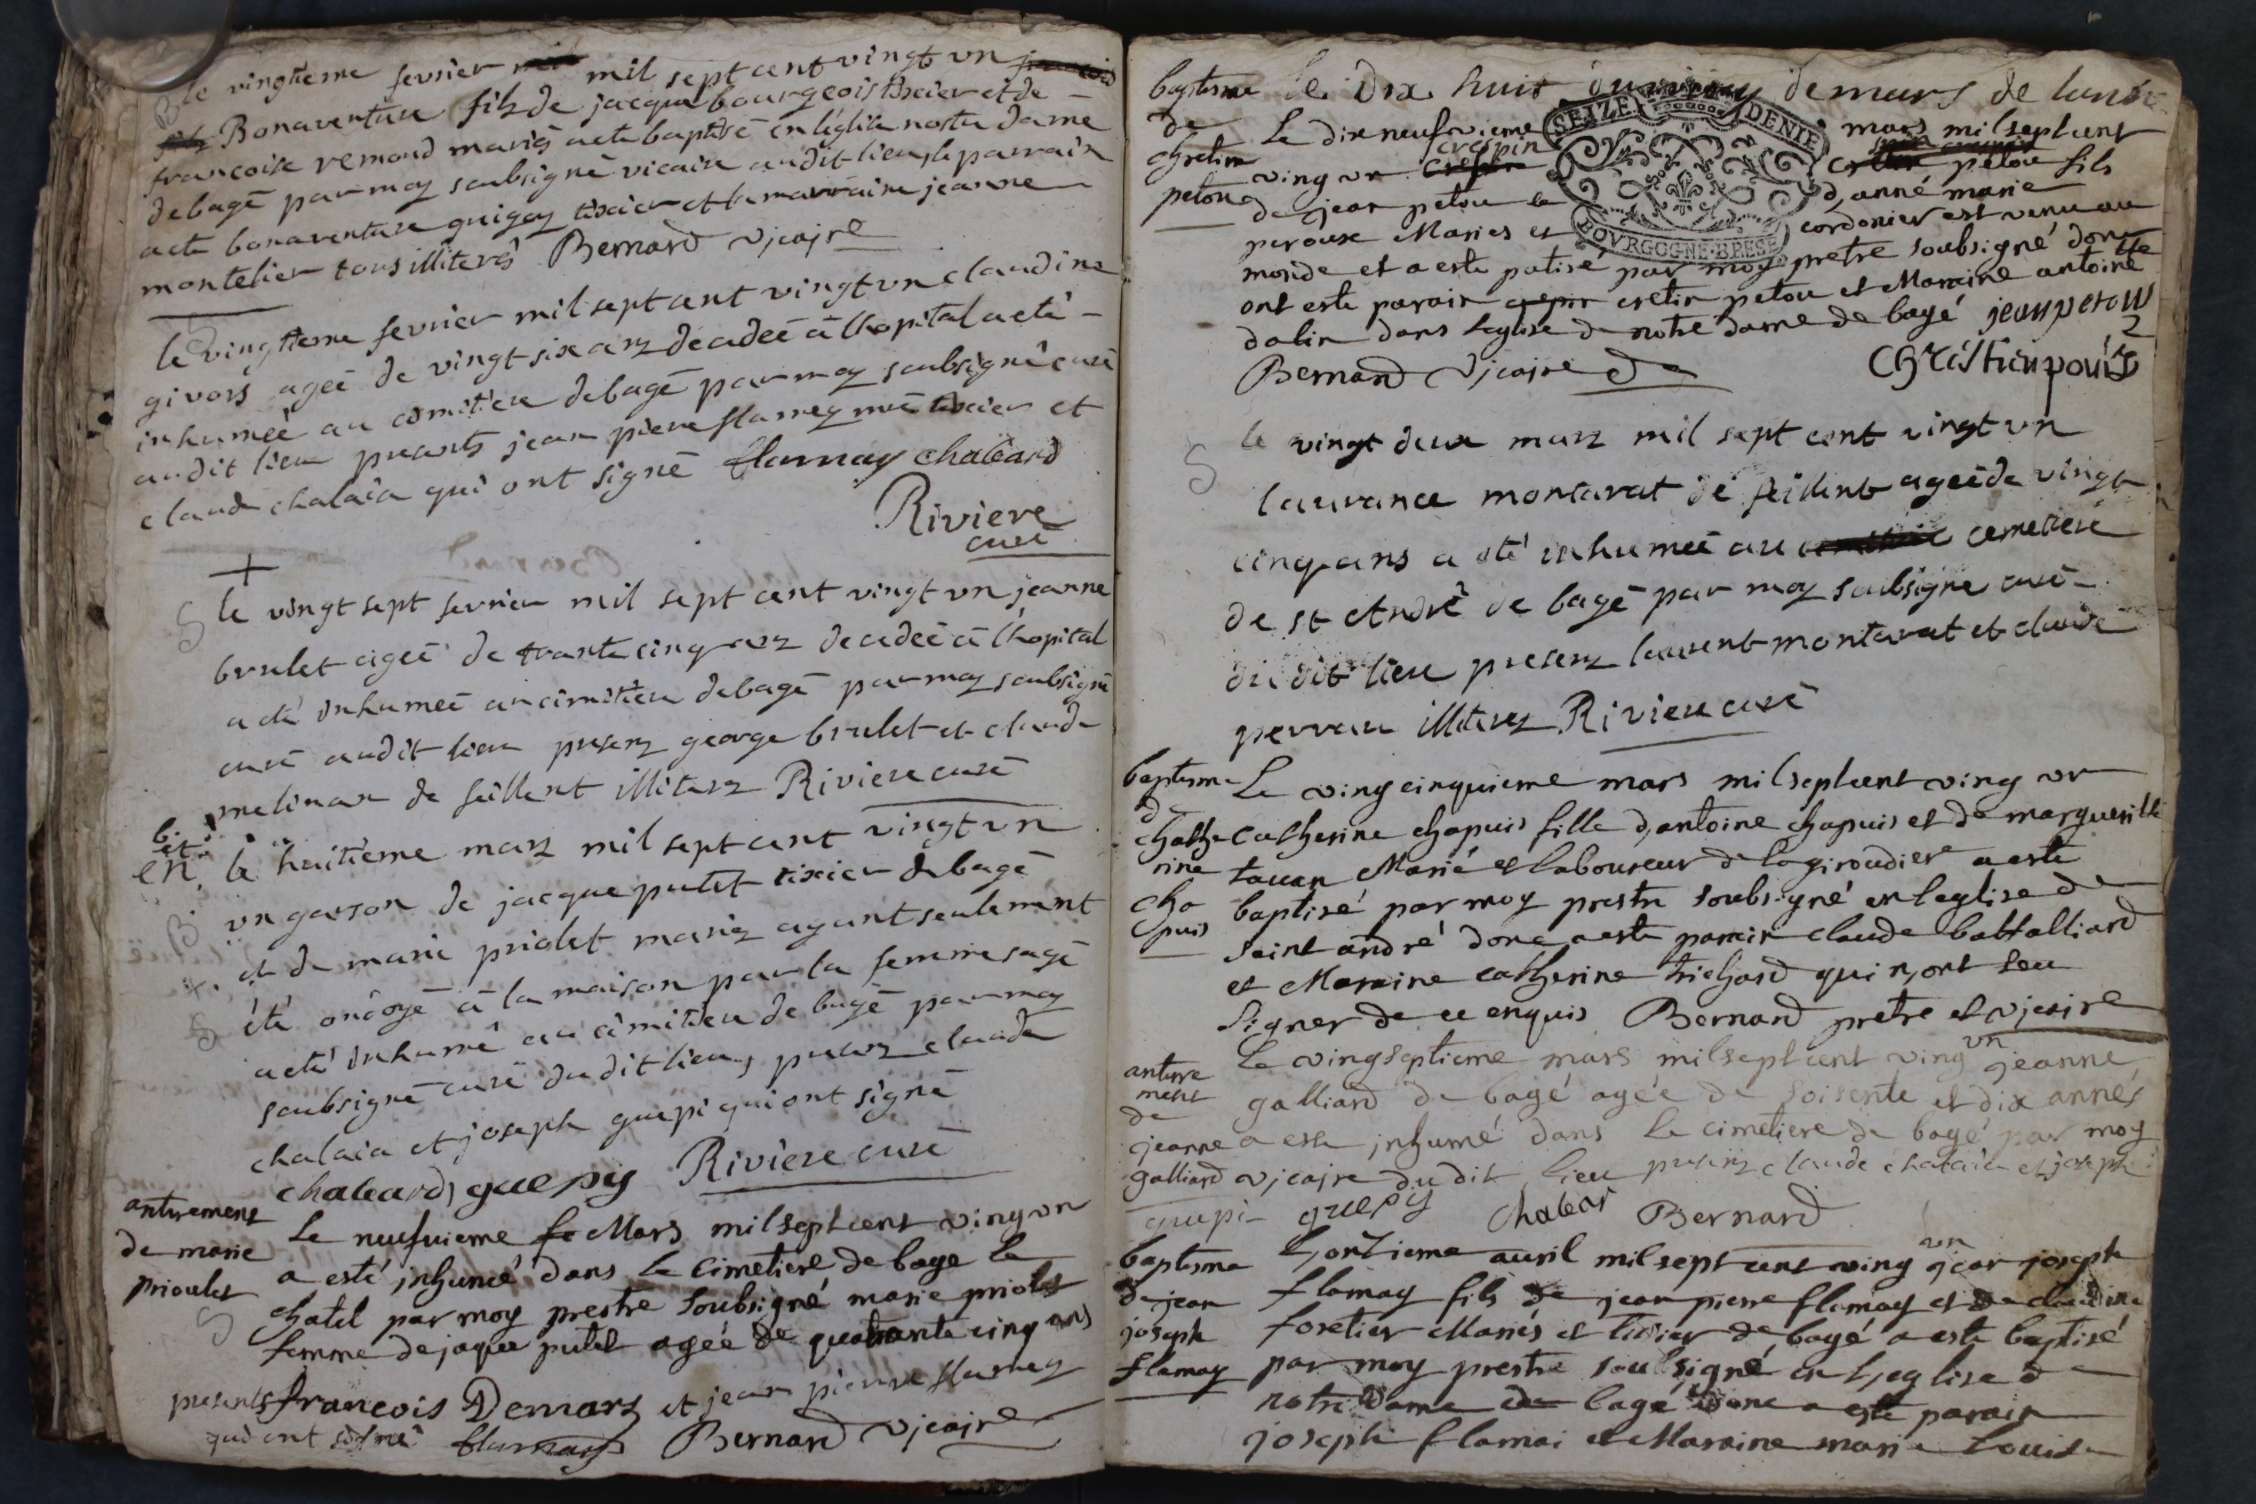 B le vingtieme fevrier mil sept cent vingt un
Bonaventure fils de jacque bourgeois tixier et de
francoise remond mariés a eté baptisé en l'églile nostre dame
de bagé par moy soubsigné vicaire audit lieu, le parrain
a eté bonaventure guigoz tixier et la marraine jeanne
montelier tous illiterés Bernard vicaire
S
le vingtieme fevrier mil sept cent vingt un claudine
givors ageé de vingt six anz decedeé a l'hopital a eté
inhumeé au cimitiere de bagé par moy soubsigné curé
audit lieu presents jean piere flamey tixier et
claude chalaia qui ont signé flamay chaleard
Riviere
curé
+
S le vingt sept fevrier mil sept cent vingt un jeanne
brulet ageé de trante cinq anz decedeé a l'hopital
a eté inhumeé au cimitiere de bagé par moy soubsigné
curé audit lieu presenz george brulet et claude
melinan de feillent illiterez Riviere curé
b. et en. le huitieme marz mil sept cent vingt un
B un garson de jacque putet tixier de bagé
et de marie priolet mariez ayant seulement
été ondoyé a la maison par la femme sage
S a eté inhumé au cimitiere de bagé par moy
soubsigné curé dudit lieu, presenz claude
chalaia et joseph guepi qui ont signé
chaleard, guepy Riviere curé
anterement
de marie
prioulet
S
Le neufuieme Mars mil sept cent ving un
a esté inhumé dans le cimetiere de bage le
chatel par moy prestre soubsigné marie priolet
femme de jaque putet agée de quatrante cinq ans
presents francois Demarz et jean pierre flamey
qui ont signé flamay Bernard vicaire
baptisme
de
chretin
petou
le dix huit de mars de
Le dix neufvieme mars mil sept cent
ving un crespin petou fils
de jean petou d,anné marie
perouse Mariés et cordonier est venu au
monde et a este patisé par moy pretre soubsigné donc
ont este parain cretin petou et Maraine antoinette
dalin dans leglise de notre dame de bagé jean petou
Bernard vicaire
Christien
SEIZE DENIE
BOVRGOGNE·BRESE
S le vingt deux marz mil sept cent vingt un
laurance montarat de feillent ageé de vingt
cinq ans a eté inhumeé au cemetiere
de st André de bagé par moy soubsigné curé
du dit lieu presenz laurent montarat et claude
perrau illiterez Riviere curé
baptisme
de
cathe
rine
cha
puis
Le ving cinquieme mars mil sept cent ving un
catherine chapuis fille d,antoine chapuis et de margueritte
tavan Marié et laboureur de la giroudiere a esté
baptisé par moy prestre soubsigné en leglise de
saint andré donc a esté parain claude battalliard
et Maraine catherine trichard qui n,ont seu
signer de ce enquis Bernard pretre et vicaire
anterre
ment
de
jeanne
galliard
Le ving septieme mars mil sept cent ving un jeanne
galliard de bagé agée de soisente et dix annés
a esté inhumé dans le cimetiere de bagé par moy
vicaire dudit lieu presenz claude chalaia et joseph
guepi guepy chalear Bernard
baptisme
de jean
joseph
flamay
L'onzieme auril mil sept cent ving un jean joseph
flamay fils de jean pierre flamay et de claudine
foretier Mariés et tixier de bagé a esté baptisé
par moy prestre soubsigné en l,eglise de
notre dame de bagé donc a esté parain
joseph flamai et Maraine marie louise